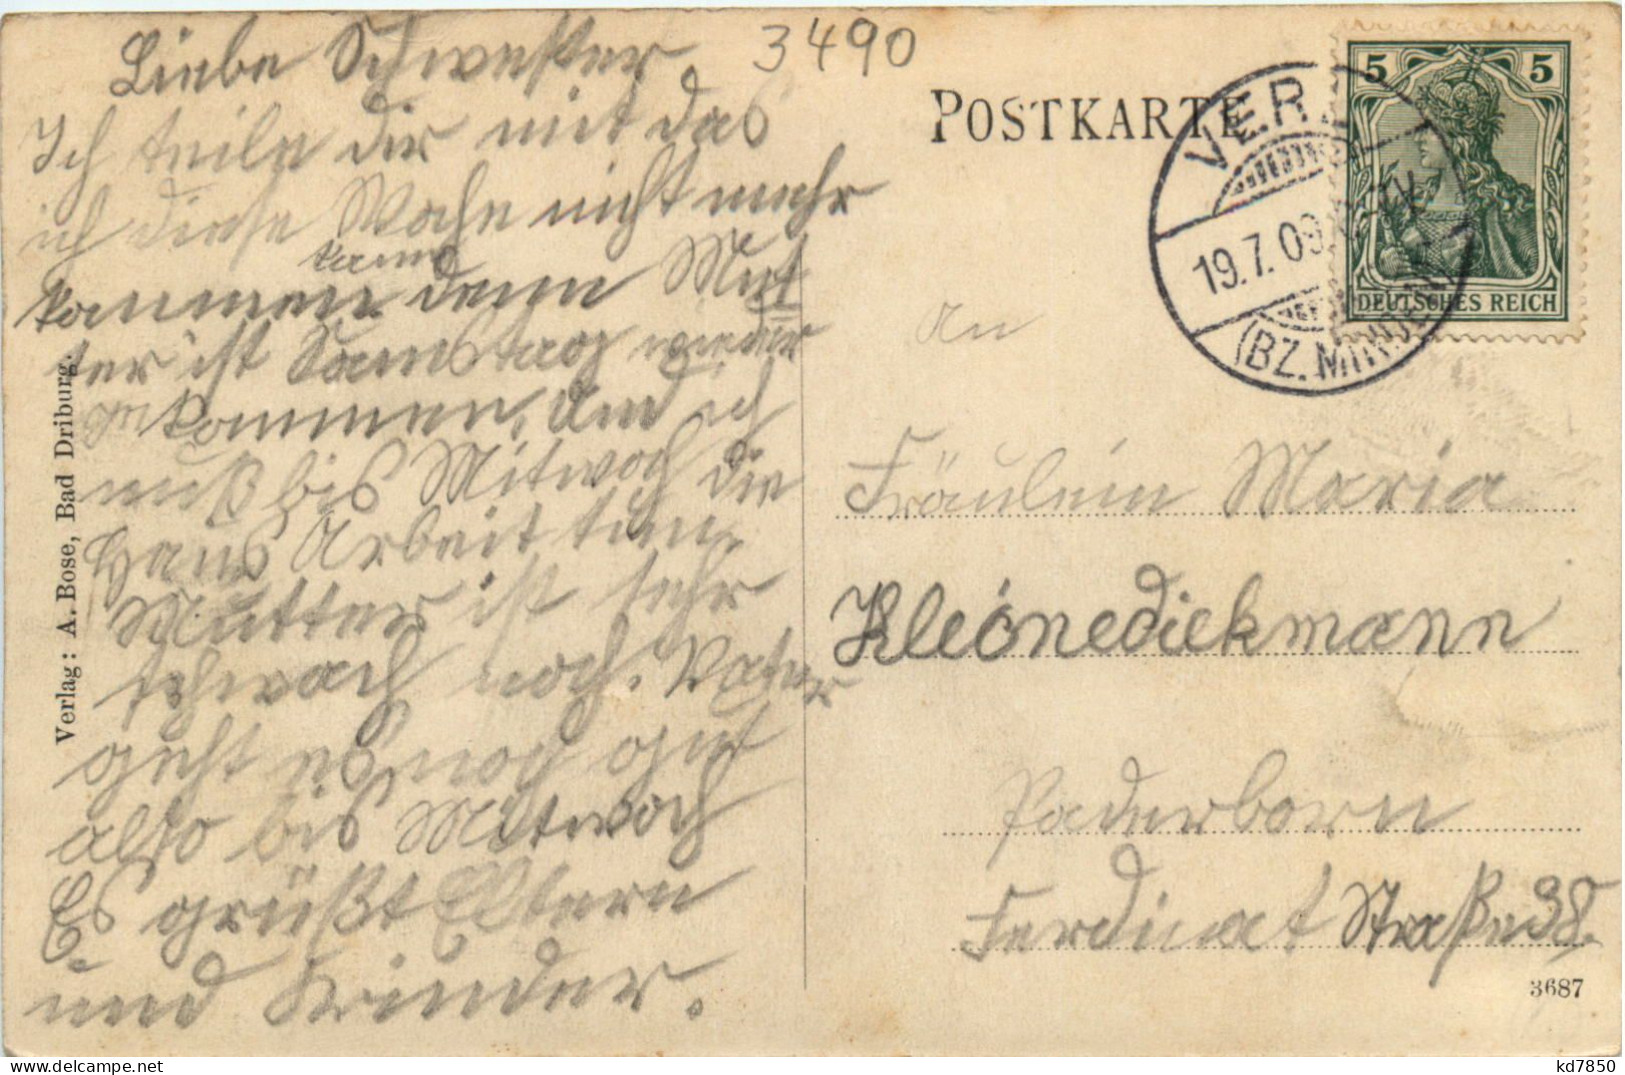 3490
Liebe Schwester.
Ich teile dir mit das
ich diese Woche nicht mehr
kann
kommen denn Mut
ter ist Samstag wieder
ge kommen. Und ich
muß bis Mitwoch die
Haus Arbeit tun.
Mutter ist sehr
schwach noch. Vater
geht es noch gut
also bis Mittwoch
Es grüßt Eltern
und Kinder.
Verlag: A. Bose, Bad Driburg.
POSTKARTE
VER
19.7.09
(BZ. MINDEN)
5 5
DEUTSCHES REICH
An
Fräulein Maria
Kleinediekmann
Paderborn
Ferdinat Straße 38.
3687
kd7850